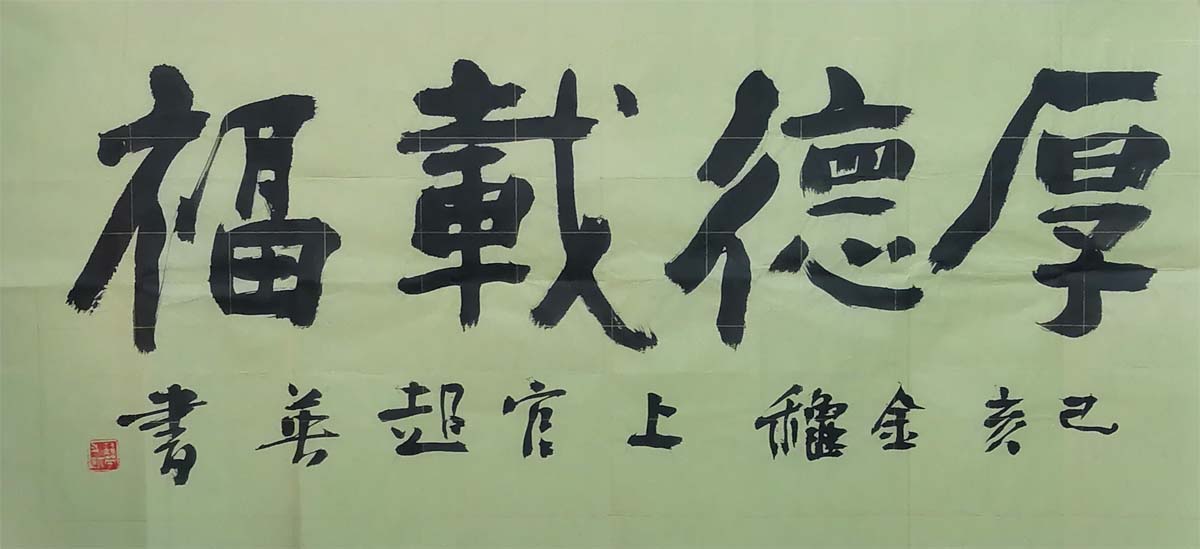 厚德載福
己亥金穐上官超英書